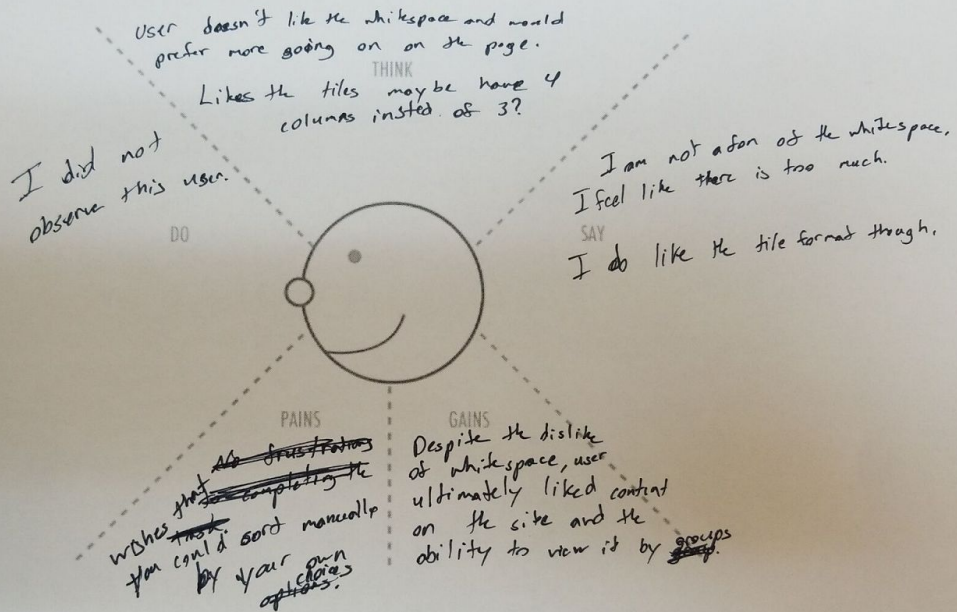 User doesn't like the whitespace and would
prefer more going on on the page.
THINK
Likes the tiles maybe have 4
columns insted of 3?
I did not
observe this user.
DO
I am not a fan of the whitespace,
I feel like there is too much.
SAY
I do like the tile format though.
PAINS
No frustrations
wishes that to completing the
task.
you could sort manually
by your own
choices
options.
GAINS
Despite the dislike
of whitespace, user
ultimately liked content
on the site and the
ability to view it by groups